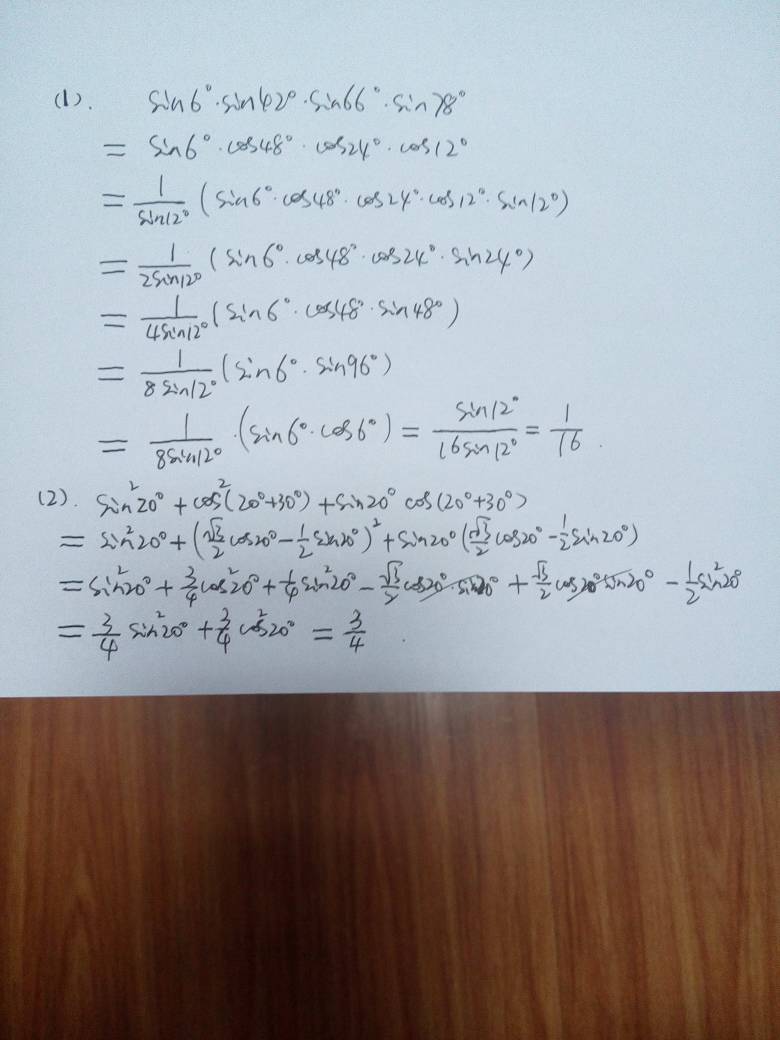 (1). sin6°·sin42°·sin66°·sin78°
= sin6°·cos48°·cos24°·cos12°
= 1/sin12° (sin6°·cos48°·cos24°·cos12°·sin12°)
= 1/2sin12° (sin6°·cos48°·cos24°·sin24°)
= 1/4sin12° (sin6°·cos48°·sin48°)
= 1/8sin12° (sin6°·sin96°)
= 1/8sin12° ·(sin6°·cos6°) = sin12°/16sin12° = 1/16.
(2). sin²20°+cos²(20°+30°)+sin20°cos(20°+30°)
= sin²20°+(√3/2 cos20°-1/2 sin20°)²+sin20°(√3/2 cos20°-1/2 sin20°)
= sin²20°+3/4 cos²20°+1/4 sin²20°-√3/2 cos20°·sin20°+√3/2 cos20°sin20°-1/2 sin²20°
= 3/4 sin²20°+3/4 cos²20° = 3/4.